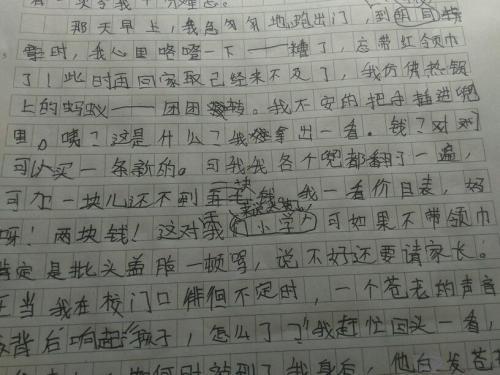 那天早上，我急匆匆地跑出门，到
时，我心里咯噔一下——糟了，忘带红领巾
了！此时再回家取已经来不及了，我仿佛热锅
上的蚂蚁——团团转。我不安的把手插进兜
里。咦？这是什么？我拿出一看。钱？对对
可以买一条新的。可我我各个兜都翻了一遍，
可加一块儿还不到一块钱，我一看价目表，好
呀！两块钱！这对我们小学 可如果不带领巾
肯定是批头盖脸一顿骂，说不好还要请家长。
正当我在校门口徘徊不定时，一个苍老的声音
背后响起“孩子，怎么了？”我赶忙回头一看，
何时站到了我身后，他白发苍